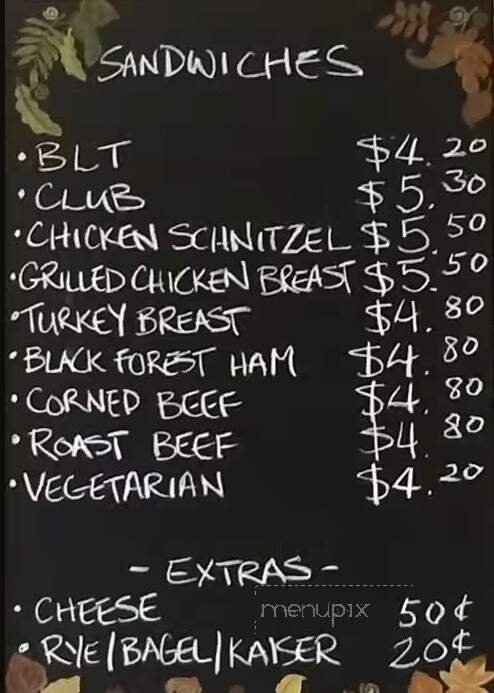 SANDWICHES
• BLT $4.20
• CLUB $5.30
• CHICKEN SCHNITZEL $5.50
• GRILLED CHICKEN BREAST $5.50
• TURKEY BREAST $4.80
• BLACK FOREST HAM $4.80
• CORNED BEEF $4.80
• ROAST BEEF $4.80
• VEGETARIAN $4.20
- EXTRAS -
• CHEESE 50¢
menupix
• RYE/BAGEL/KAISER 20¢